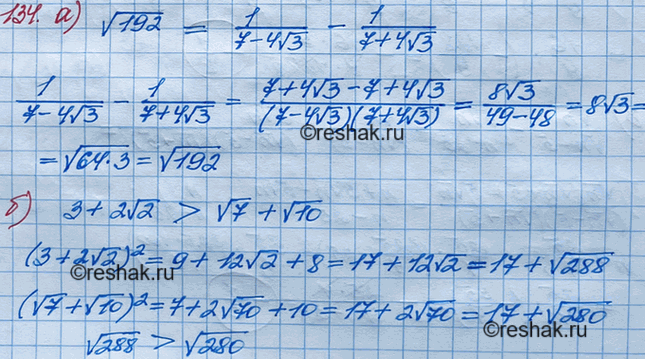 134. а) √192 = 1/(7-4√3) - 1/(7+4√3)
1/(7-4√3) - 1/(7+4√3) = (7+4√3-7+4√3)/((7-4√3)(7+4√3)) = 8√3/(49-48) = 8√3 =
©reshak.ru
= √(64·3) = √192
©reshak.ru
б) 3+2√2 > √7 + √10
(3+2√2)² = 9+12√2+8 = 17+12√2 = 17+√288
©reshak.ru
(√7+√10)² = 7+2√70+10 = 17+2√70 = 17+√280
√288 > √280
©reshak.ru